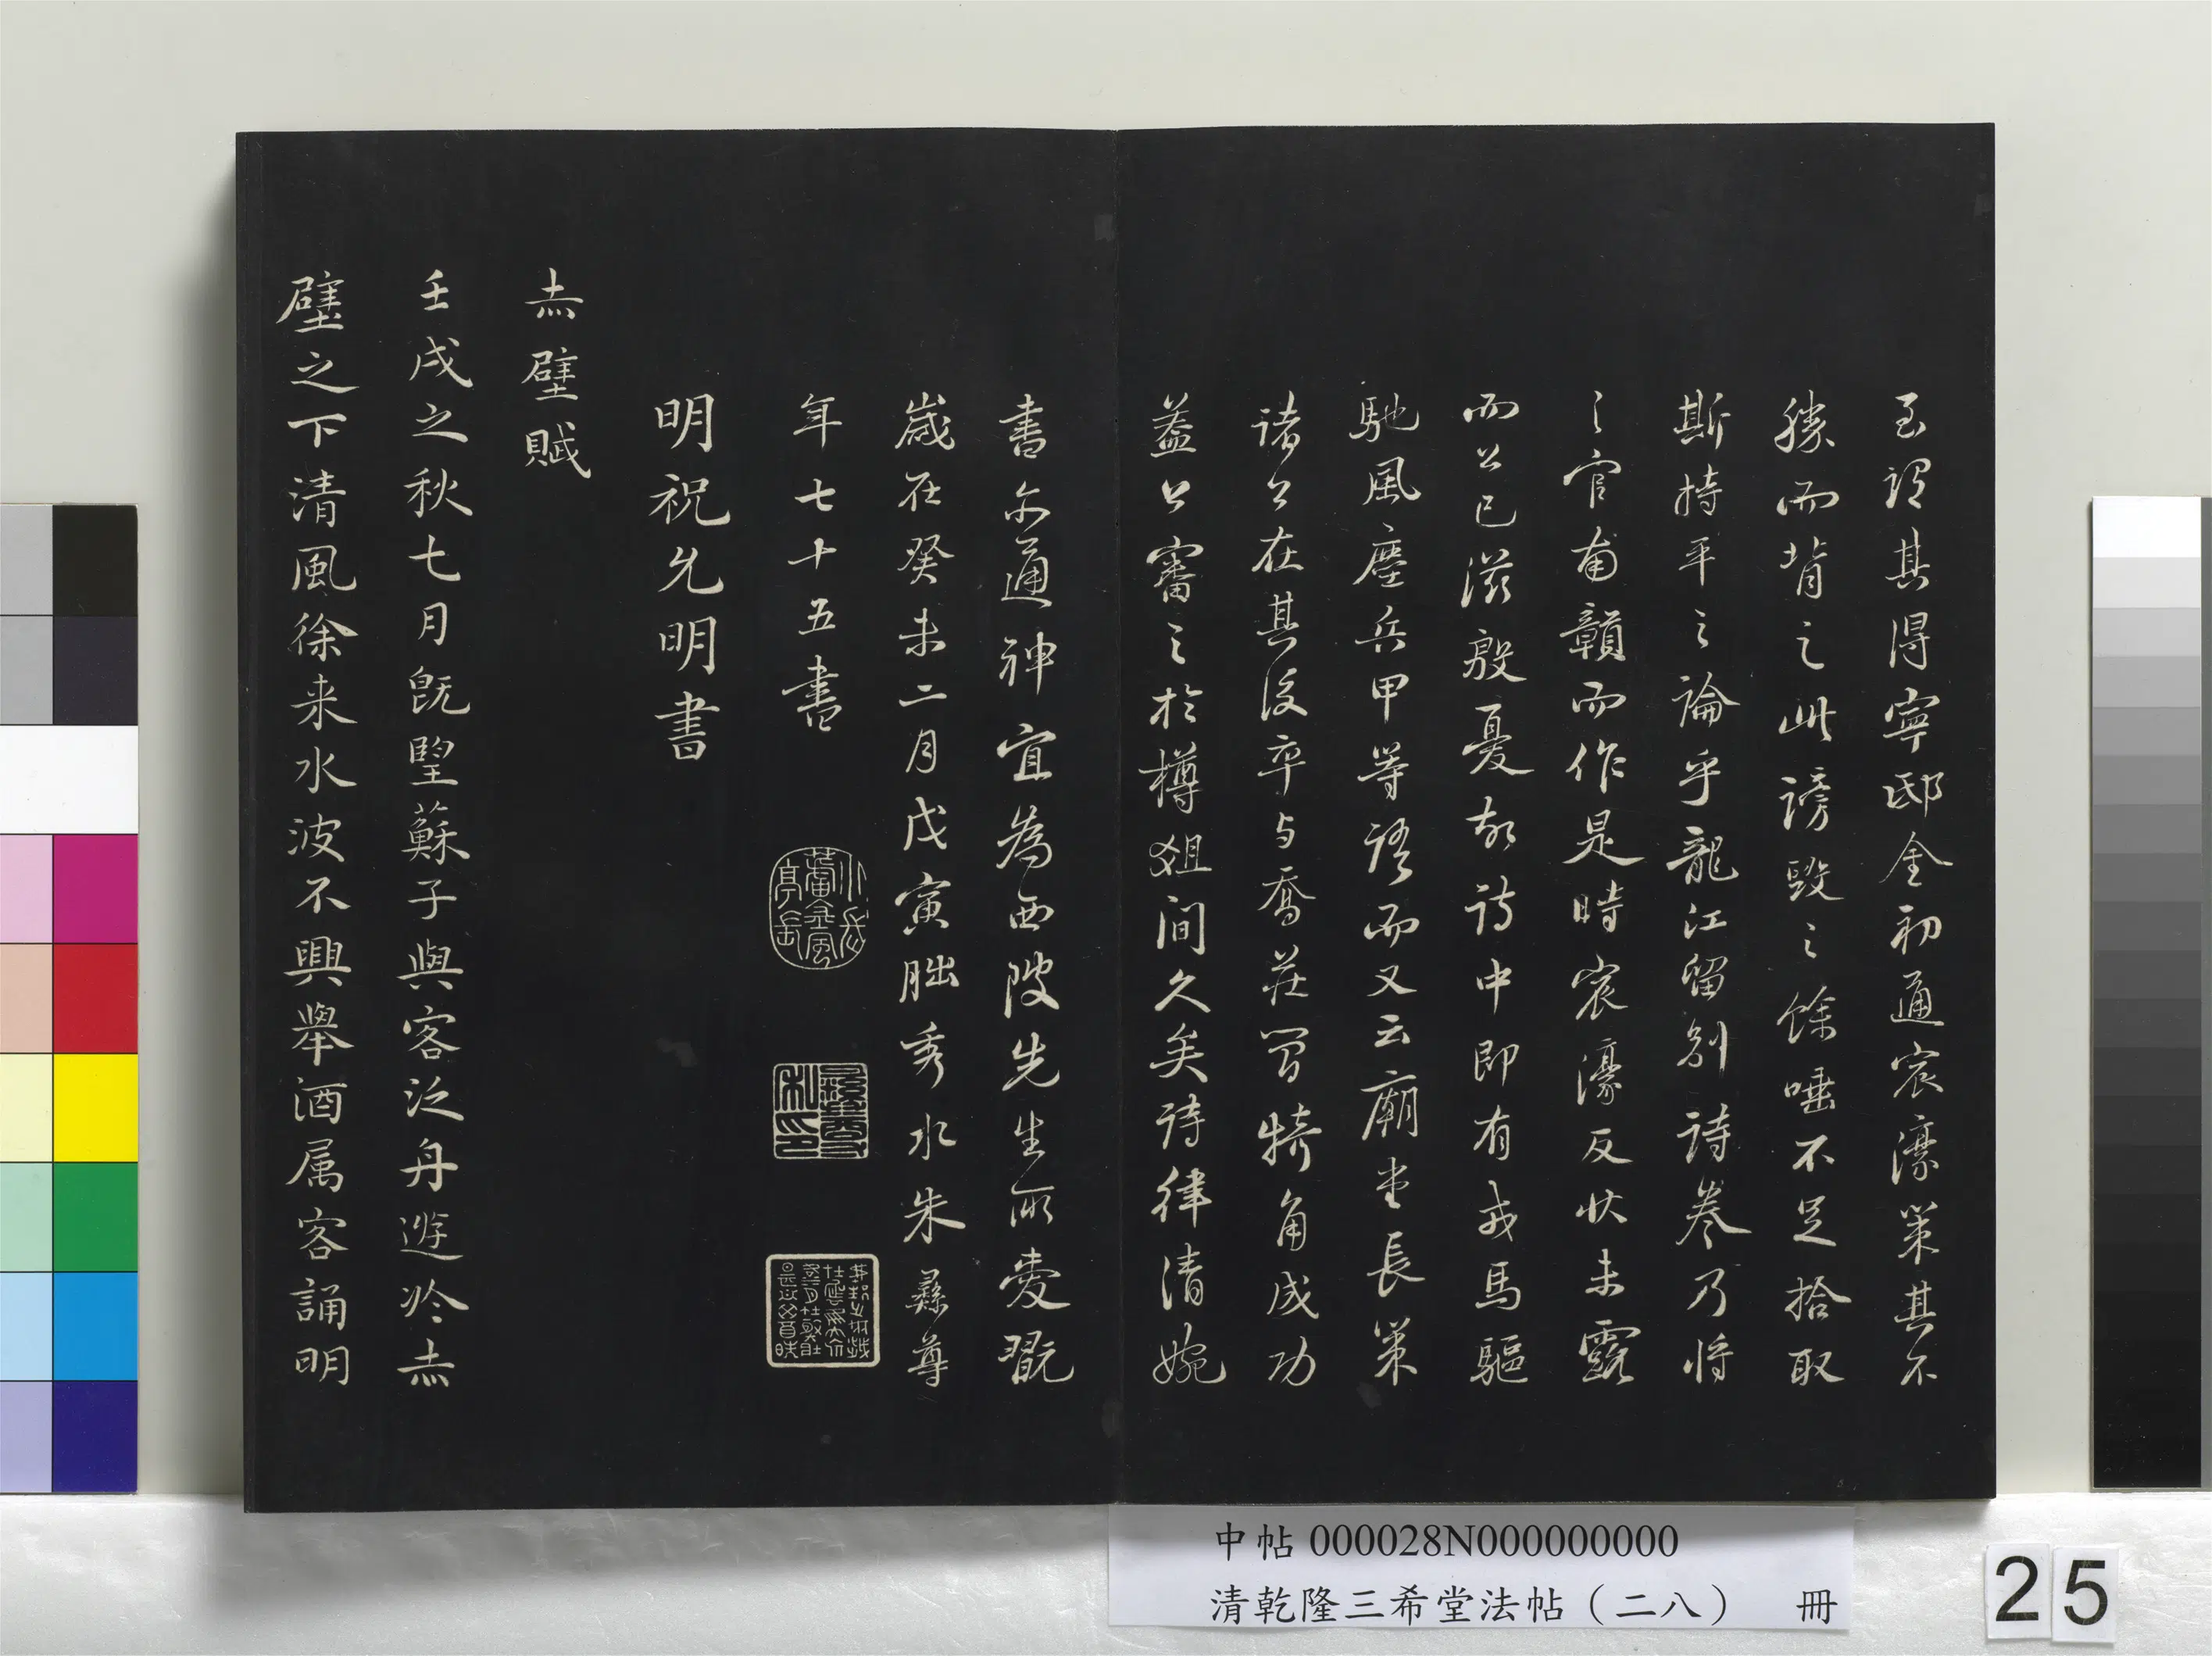 至謂其得寧邸金初通宸濠策其不
勝而背之此謗毀之餘唾不足拾取
斯持平之論乎龍江留別詩卷乃將
之官南贛而作是時宸濠反狀未露
而公已滋殷憂故詩中即有戎馬驅
馳風塵兵甲等語而又云廟堂長策
諸公在其後卒与喬莊簡犄角成功
蓋公審之於樽俎間久矣詩律清婉
書亦通神宜為西陂先生所愛翫
歲在癸未二月戊寅朏秀水朱彝尊
年七十五書
明祝允明書
赤壁賦
壬戌之秋七月既望蘇子與客泛舟遊於赤
壁之下清風徐来水波不興舉酒属客誦明
中帖 000028N000000000
清乾隆三希堂法帖（二八） 冊
25